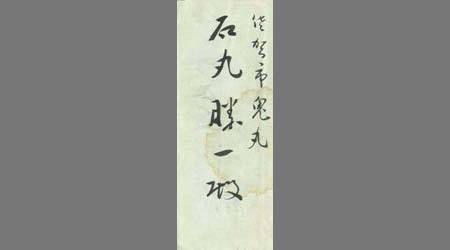 佐賀市鬼丸
石丸勝一殿